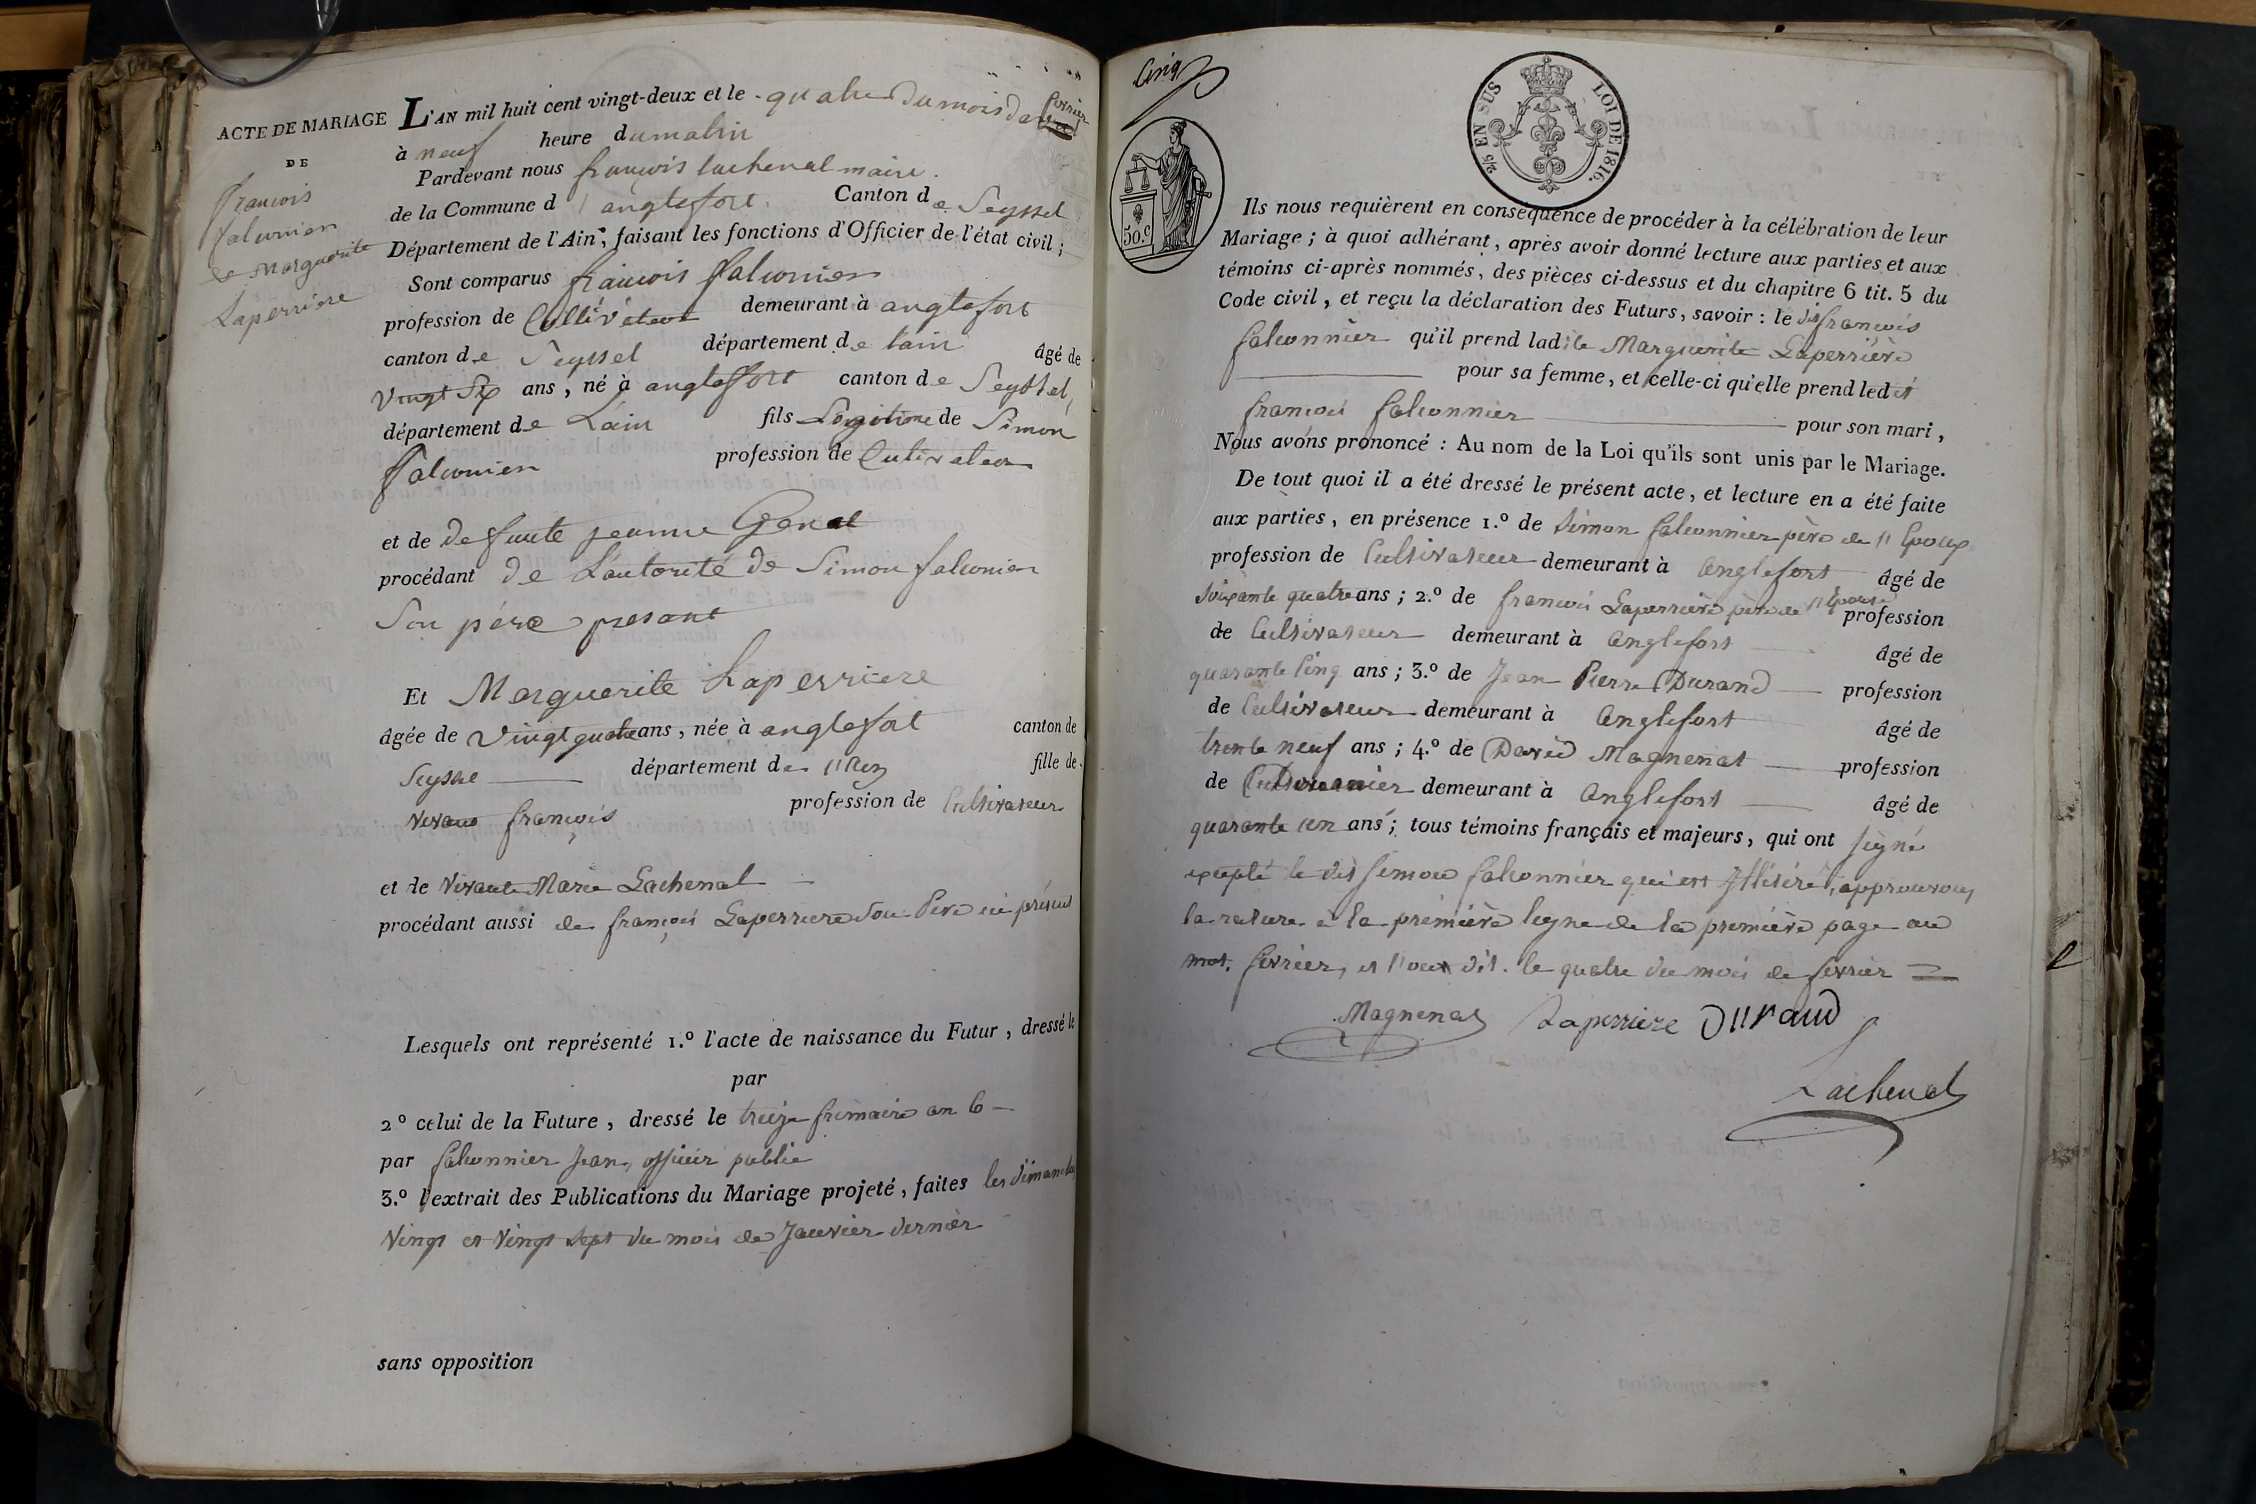 ACTE DE MARIAGE
DE
francois
falconier
& Marguerite
Laperriere
L'AN mil huit cent vingt-deux et le quatre du mois de fevrier
à neuf heure du matin
Pardevant nous françois lachenal maire
de la Commune d'anglefort Canton de Seyssel
Département de l'Ain, faisant les fonctions d'Officier de l'état civil;
Sont comparus francois falconier
profession de Cultivateur demeurant à anglefort
canton de Seyssel département de lain âgé de
vingt six ans, né à angleffort canton de Seyssel,
département de Lain fils Legitime de Simon
falconier profession de Cutivateur
et de defunte jeanne
procédant de Lautorité de Simon falconier
Son père presant
Et Marguerite Laperriere
âgée de vingt quatre ans, née à anglefort canton de
Seyssel département de l'ain fille de
vivant françois profession de Cultivateur
et de vivante Marie Lachenal
procédant aussi de françois Laperriere son Père ici présent
Lesquels ont représenté 1.º l'acte de naissance du Futur, dressé le
par
2º celui de la Future, dressé le treize frimaire an 6
par falconnier Jean, officier public
3.º l'extrait des Publications du Mariage projeté, faites les dimanches
Vingt et Vingt sept du mois de Janvier dernier
sans opposition
Cinq
2/10 EN SUS LOI DE 1816.
50.c
Ils nous requièrent en conséquence de procéder à la célébration de leur
Mariage; à quoi adhérant, après avoir donné lecture aux parties et aux
témoins ci-après nommés, des pièces ci-dessus et du chapitre 6 tit. 5 du
Code civil, et reçu la déclaration des Futurs, savoir: le dit francois
falconnier qu'il prend ladite Marguerite Laperrière
pour sa femme, et celle-ci qu'elle prend ledit
francois falconnier pour son mari,
Nous avons prononcé: Au nom de la Loi qu'ils sont unis par le Mariage.
De tout quoi il a été dressé le présent acte, et lecture en a été faite
aux parties, en présence 1.º de Simon falconnier père de l'Epoux
profession de Cultivateur demeurant à anglefort âgé de
soixante quatre ans; 2.º de francois Laperrière père de l'Epouse profession
de Cultivateur demeurant à anglefort âgé de
quarante cinq ans; 3.º de Jean Pierre Durand profession
de Cultivateur demeurant à anglefort âgé de
trente neuf ans; 4.º de David Magnenat profession
de Douanier demeurant à anglefort âgé de
quarante un ans; tous témoins français et majeurs, qui ont signé
excepté le dit Simon falconnier qui est Illitéré, approuvons
la rature à la première ligne de la première page au
mot. fevrier, et l'on dit. le quatre du mois de fevrier
Magnenat Laperriere Durand
Lachenal